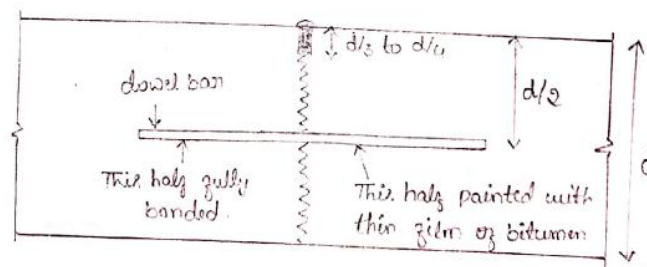 d/3 to d/4
d/2
dowel bar
This half fully
bonded.
This half painted with
thin film of bitumen
d